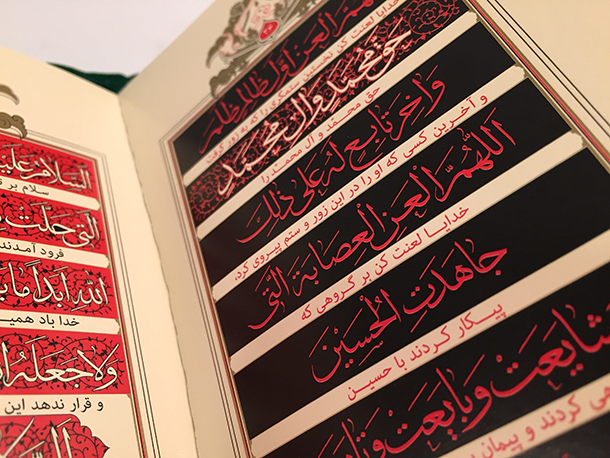 اللهُمَّ العَن اَوَّلَ ظالِمٍ ظَلَمَ
خدایا لعنت کن نخستین ستمگری را که به زور گرفت
حَقَّ مُحَمَّدٍ وَآلِ مُحَمَّدٍ
حق محمّد و آل محمّد را
وَآخِرَ تابِعٍ لَهُ عَلى ذلِكَ
و آخرین کسی که او را در این زور و ستم پیروی کرد،
اللّهُمَّ العَنِ العِصابَةَ الَّتي
خدایا لعنت کن بر گروهی که
جاهَدَتِ الحُسَينَ
پیکار کردند با حسین
شايَعَت وَبايَعَت
کردند و پیمان
السَّلامُ
سلام بر
الَّتي حَلَّت
فرود آمدند
اللهِ اَبَداً ما
خدا باد
وَلا جَعَلَهُ
و قرار ندهد این